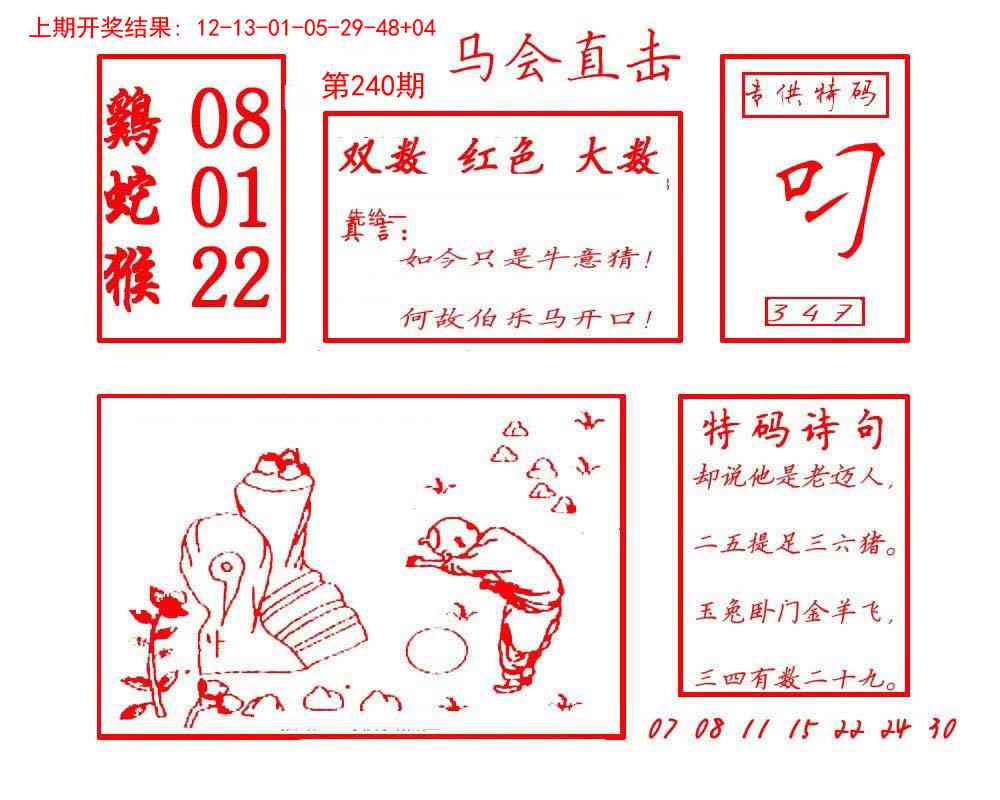 上期开奖结果: 12-13-01-05-29-48+04
马会直击
第240期
鷄 08
蛇 01
猴 22
双数 红色 大数
真言:
如今只是牛意猜!
何故伯乐马开口!
专供特码
叼
3 4 7
特码诗句
却说他是老迈人,
二五提足三六猪。
玉兔卧门金羊飞,
三四有数二十九。
07 08 11 15 22 24 30